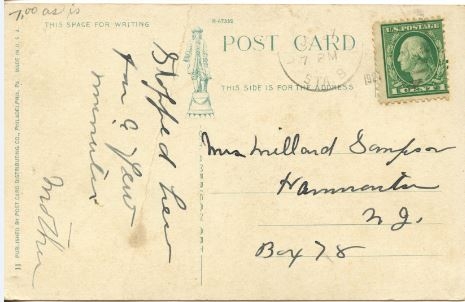 7.00 as is
THIS SPACE FOR WRITING
R-47395
POST CARD
7 PM
STA. 9
U.S. POSTAGE
1 CENT 1
THIS SIDE IS FOR THE ADDRESS
Stopped here
for a few
minutes
Mother
Mrs Millard Sampson
Hammonton
N.J.
Box 78
11 PUBLISHED BY POST CARD DISTRIBUTING CO., PHILADELPHIA, PA. MADE IN U.S.A.